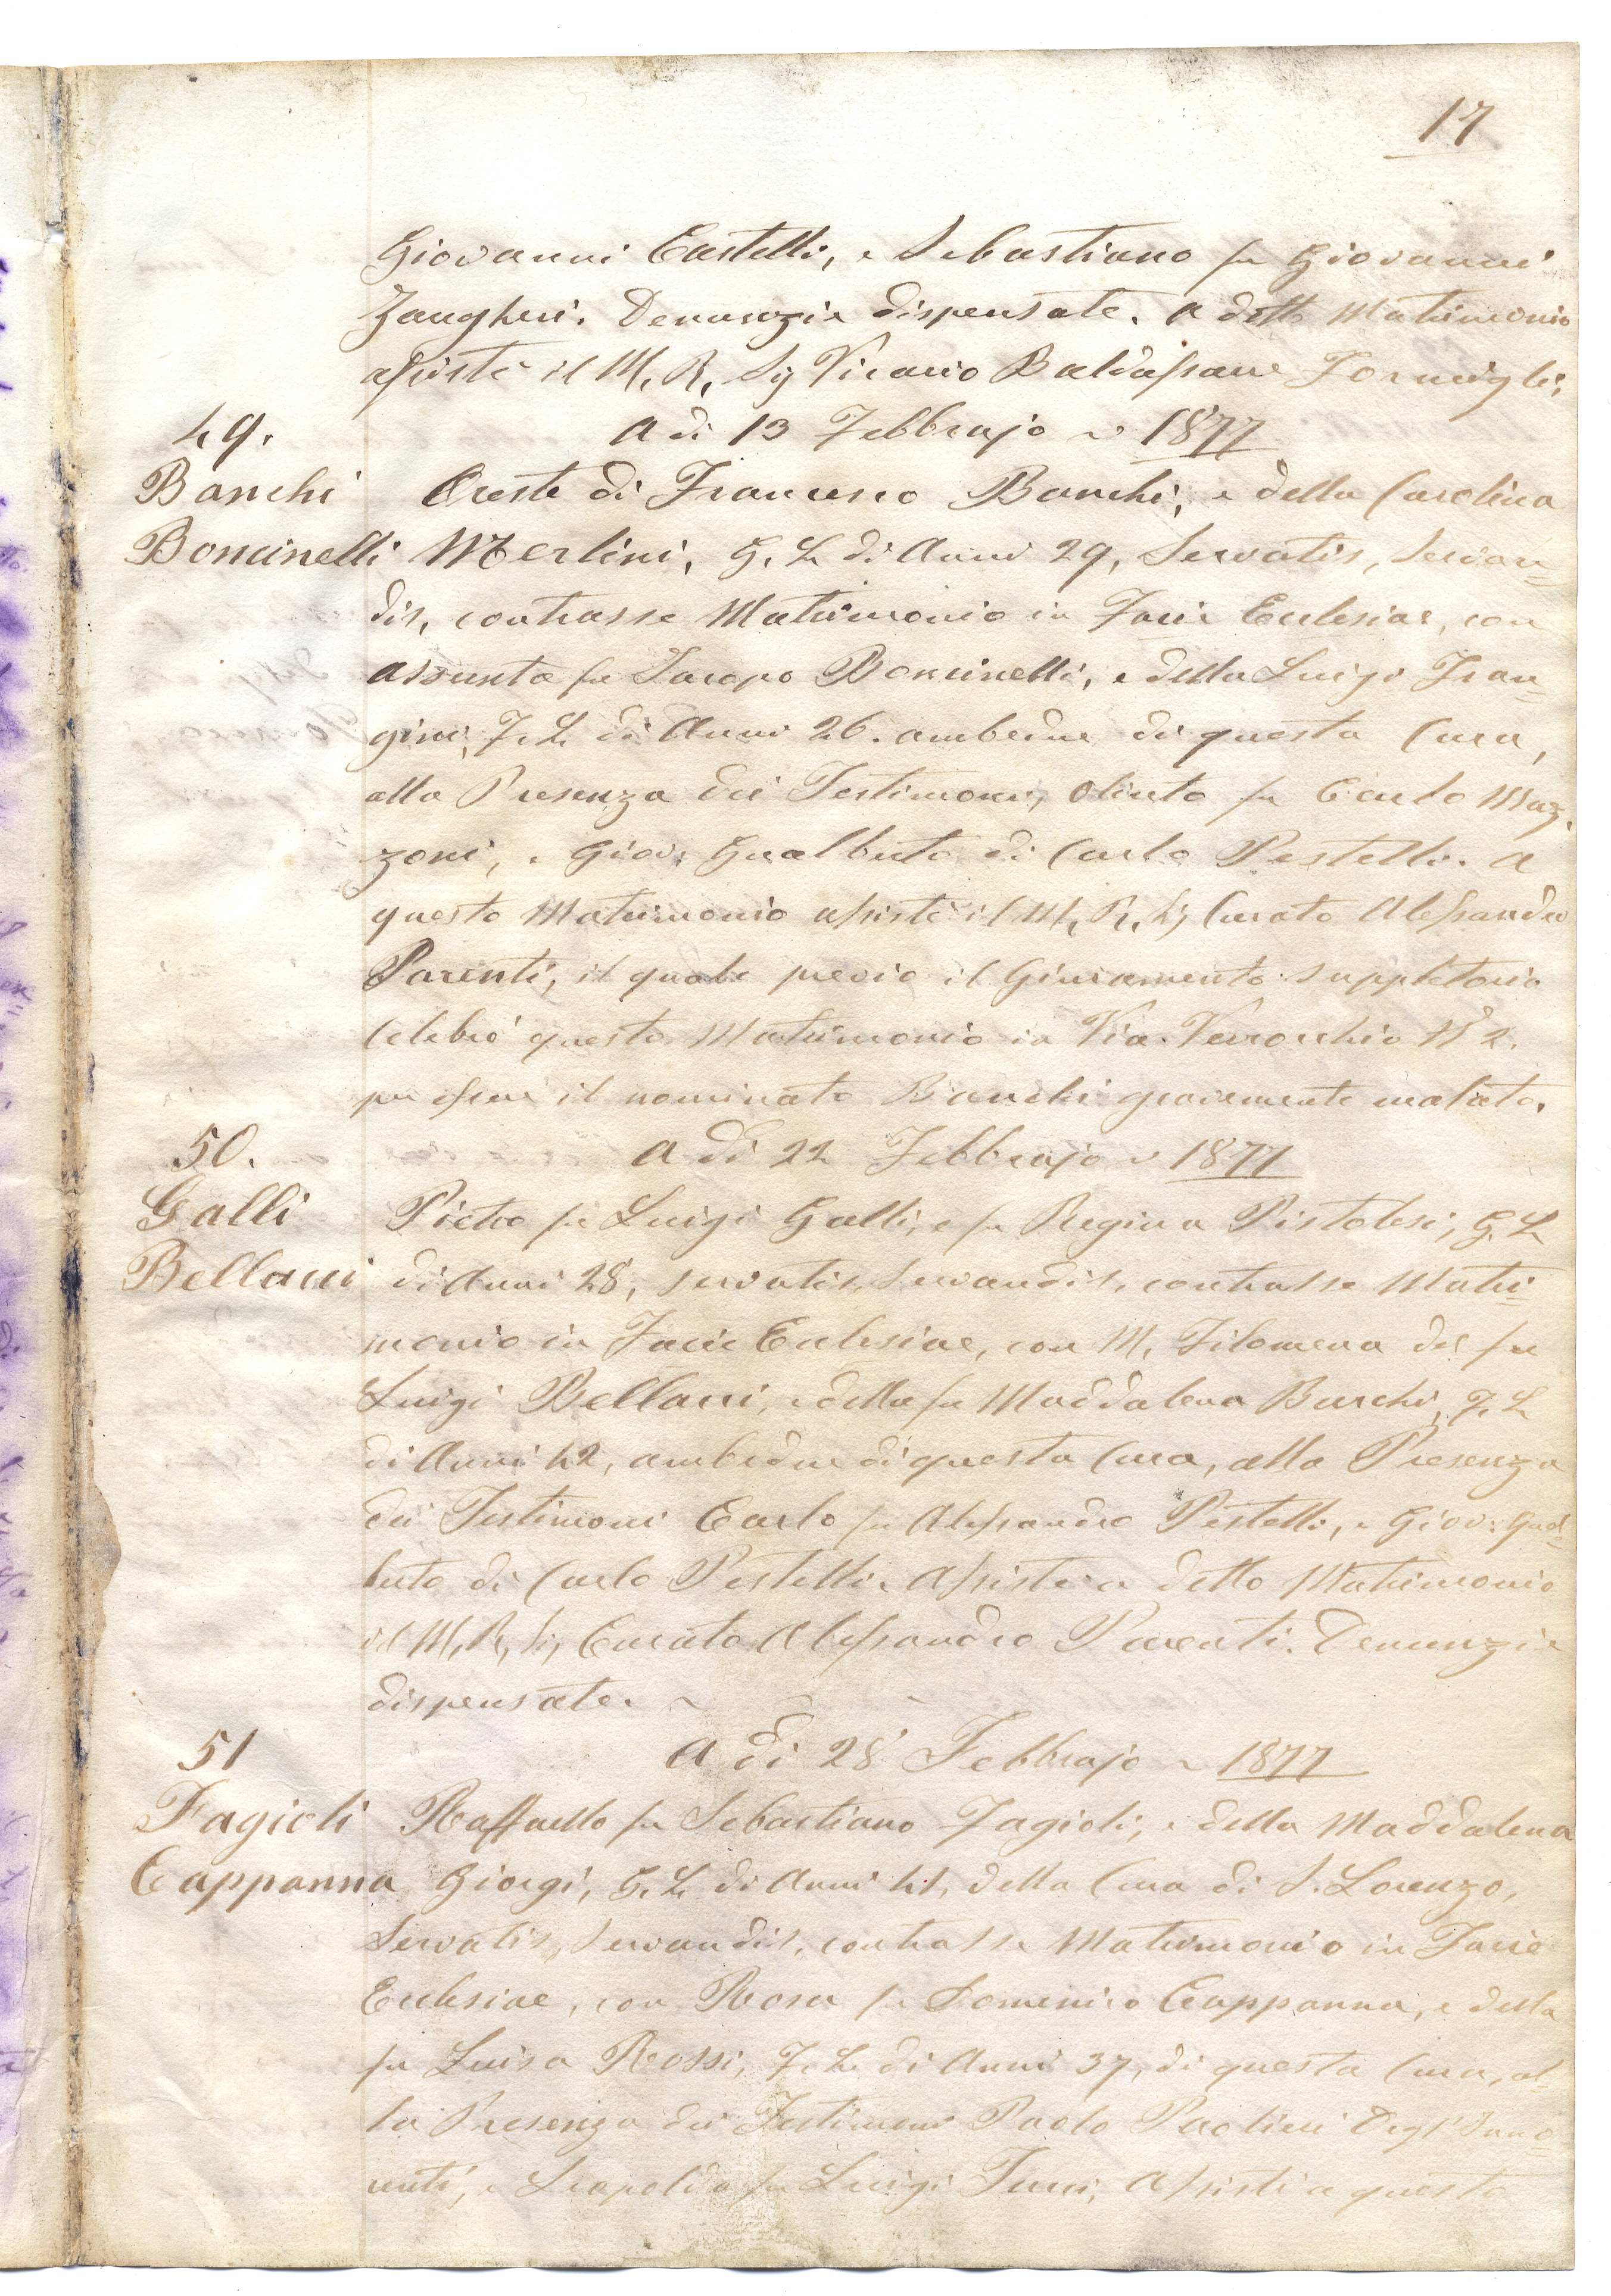 17
Giovanni Castelli, e Sebastiano fu Giovanni
Zangheri. Denunzie dispensate. A detto Matrimonio
assistè il M. R. Sig Vicario Baldassare Formigli.
49.
A di 13 Febbrajo ~ 1877
Banchi
Oreste di Francesco Banchi, e della Carolina
Boncinelli
Merlini, G. L. di Anni 29, Servatis, Servan=
dis, contrasse Matrimonio in Facie Eclesiae, con
Assunta fu Jacopo Boncinelli, e della Luigi Fran=
gini, F. L. di Anni 26. ambedue di questa Cura,
alla Presenza dei Testimoni, Olinto fu Carlo Maz=
zoni, e Giov: Gualberto di Carlo Pestelli. A
questo Matrimonio assistè il M. R. Sig Curato Alessandro
Parenti, il quale previo il Giuramento suppletorio
Celebrò questo Matrimonio in Via Verrocchio N° 2.
per essere il nominato Banchi gravemente malato.
50.
A di 22 Febbrajo ~ 1877
Galli
Pietro fu Luigi Galli, e fu Regina Pistolesi, G. L.
Bellacci
di Anni 28, servatis, Servandis, contrasse Matri=
monio in Facie Eclesiae, con M. Filomena del fu
Luigi Bellacci, e della fu Maddalena Burchi, F. L.
di Anni 42, ambedue di questa Cura, alla Presenza
dei Testimoni Carlo fu Alessandro Pestelli, e Giov: Gual=
berto di Carlo Pestelli. Assistè a detto Matrimonio
il M. R. Sig Curato Alessandro Parenti. Denunzie
dispensate. ~
51
A di 28 Febbrajo ~ 1877
Fagioli
Raffaello fu Sebastiano Fagioli, e della Maddalena
Cappanna
Giorgi, G. L. di Anni 41, della Cura di S. Lorenzo,
Servatis, Servandis, contrasse Matrimonio in Facie
Eclesiae, con Rosa fu Domenico Cappanna, e della
fu Luisa Rossi, F. L. di Anni 37, di questa Cura, al=
la Presenza dei Testimoni Paolo Paolieri Degl' Inno=
centi, e Leopoldo fu Luigi Assistì a questo